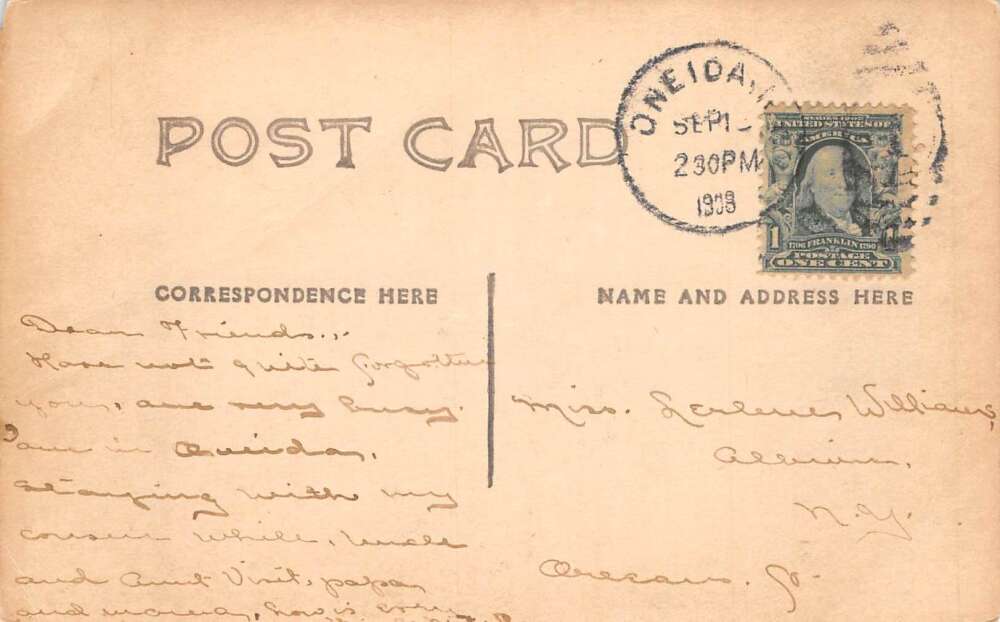 POST CARD
ONEIDA,
SEP 1
2 30 PM
1908
SERIES 1902
UNITED STATES OF
AMERICA
1
1706 FRANKLIN 1790
POSTAGE
ONE CENT
CORRESPONDENCE HERE
Dear Friends.,
Have not quite forgotten
you, are very busy.
I am in Oneida,
Staying with my
cousin while, Uncle
and Aunt Visit, papa
and mama, how is
NAME AND ADDRESS HERE
Miss. Williams,
Albion,
N.Y.
St.